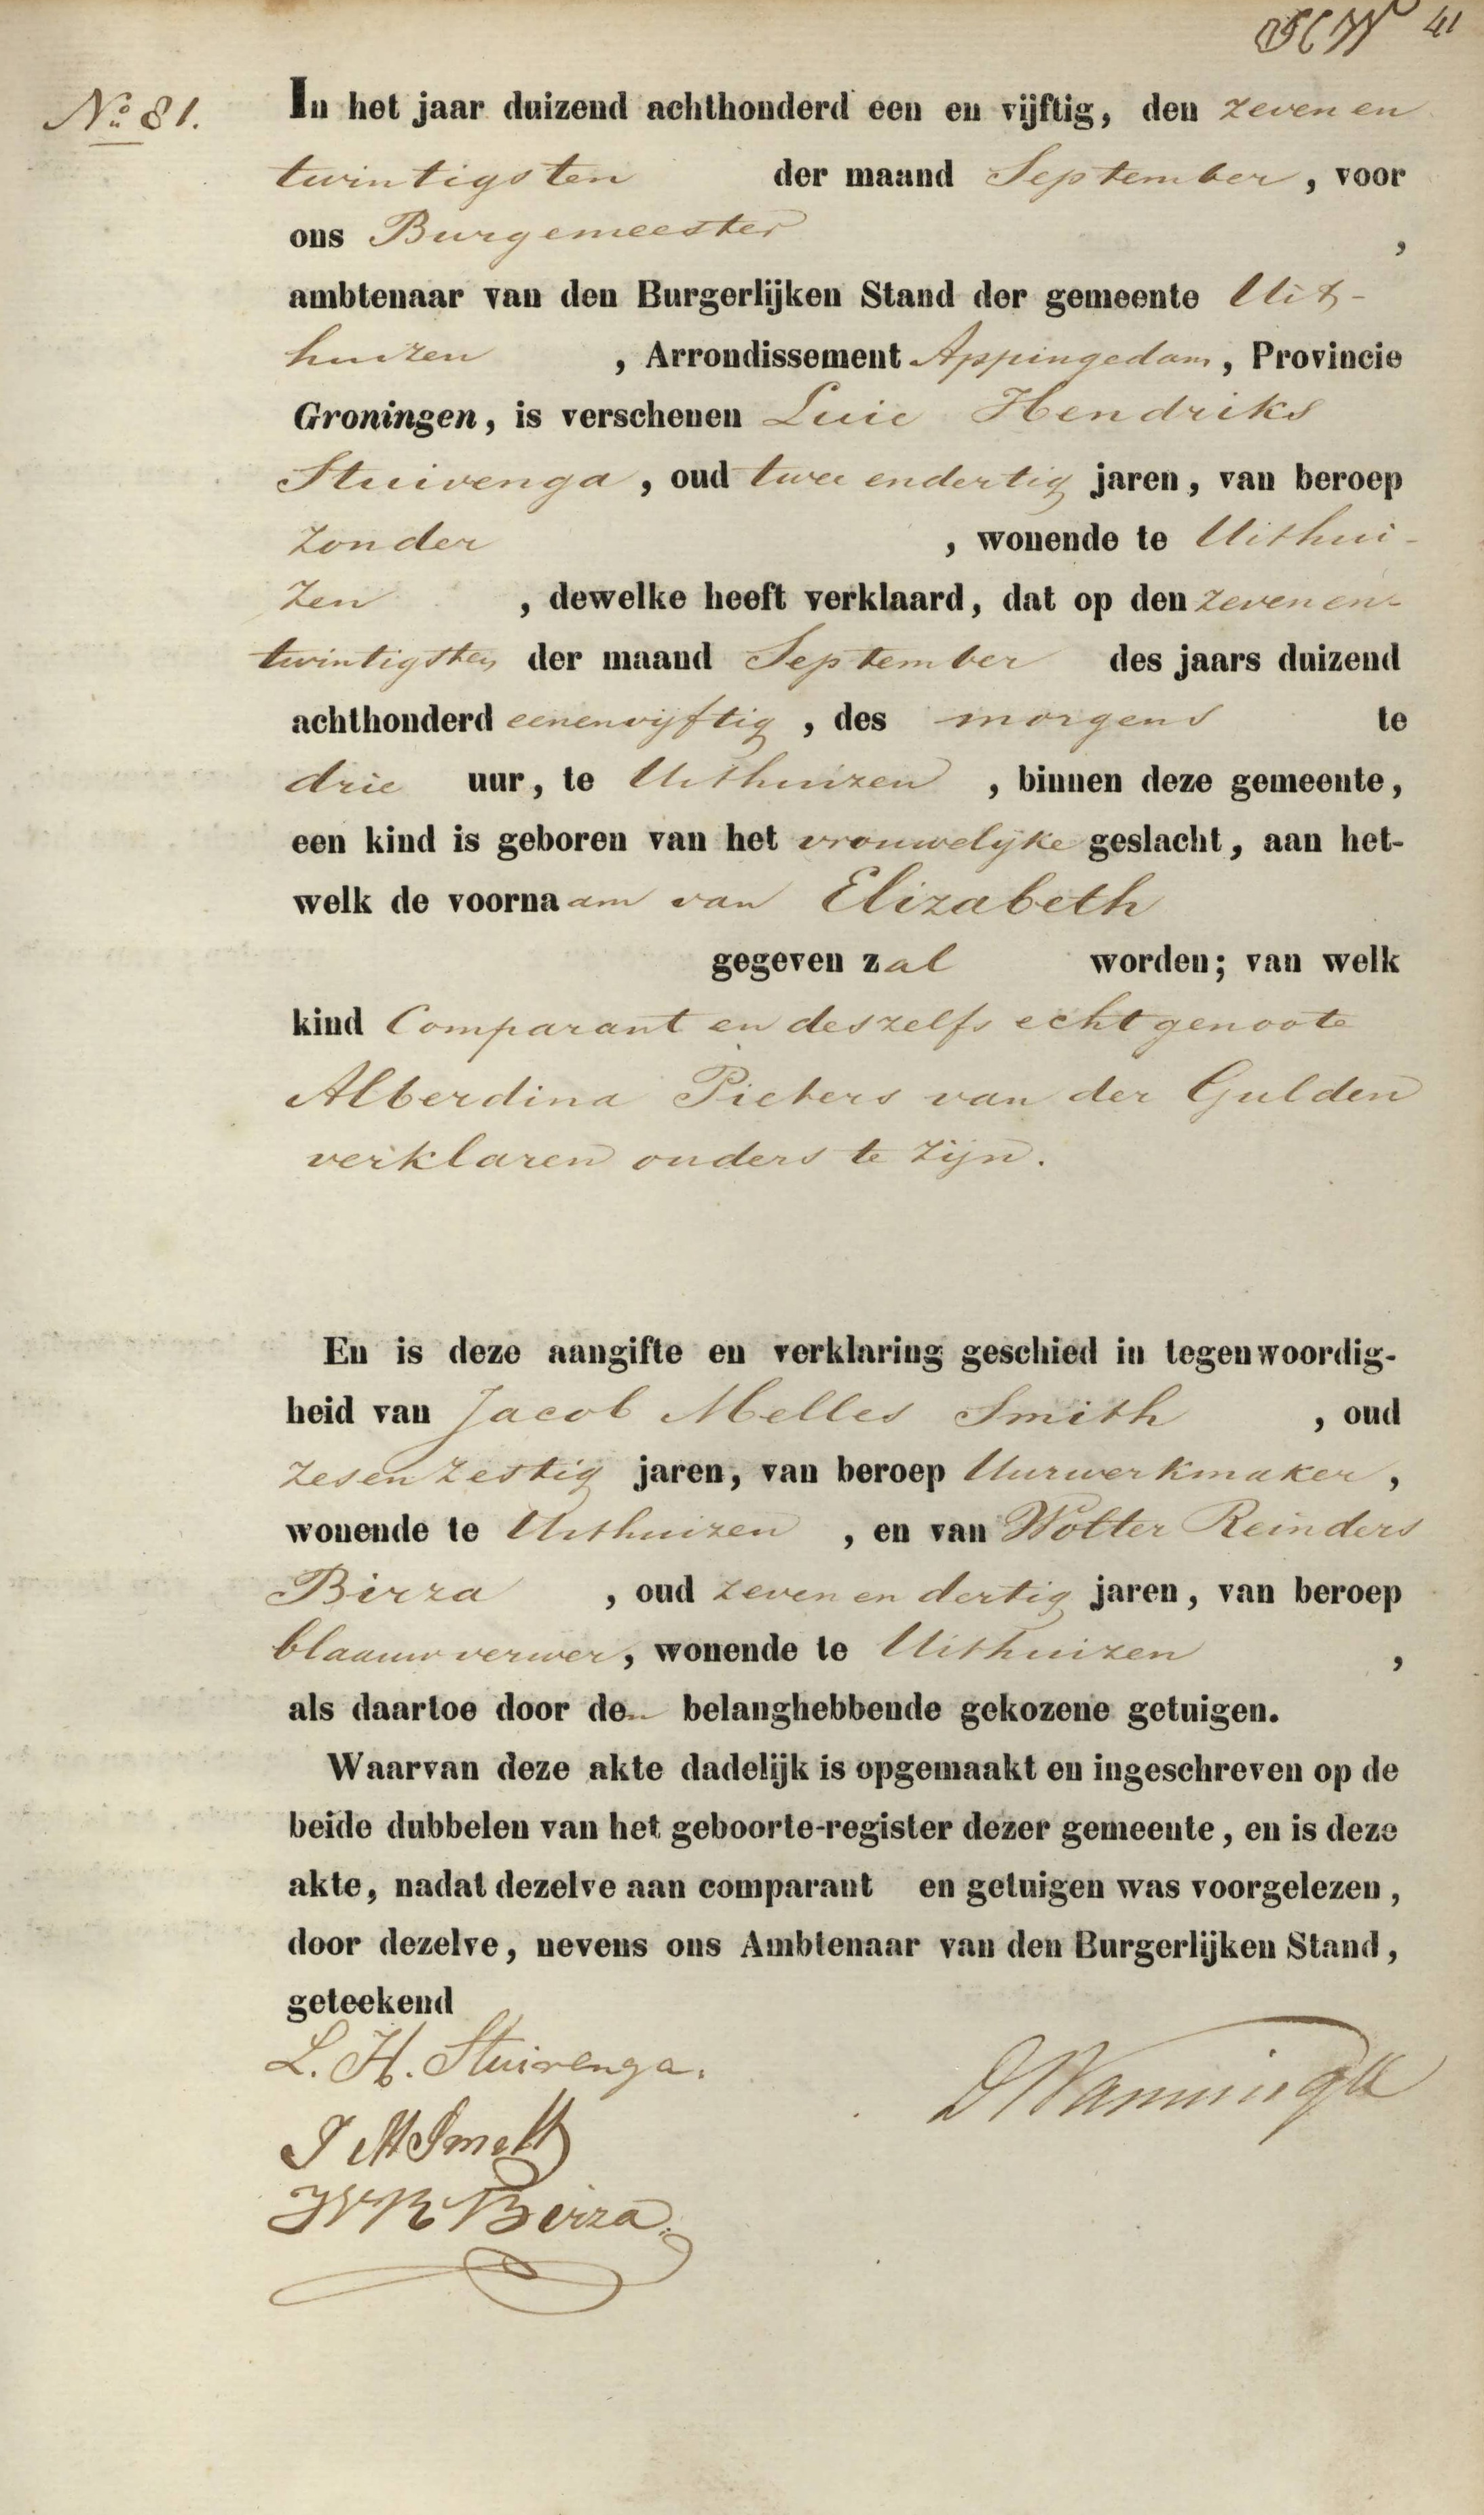 41
No 81.
In het jaar duizend achthonderd een en vijftig, den zeven en
twintigsten der maand September, voor
ons Burgemeester ,
ambtenaar van den Burgerlijken Stand der gemeente Uit-
huizen , Arrondissement Appingedam, Provincie
Groningen, is verschenen Luie Hendriks
Stuivenga, oud twee endertig jaren, van beroep
zonder , wonende te Uithui-
zen , dewelke heeft verklaard, dat op den zeven en-
twintigsten der maand September des jaars duizend
achthonderd eenenvijftig, des morgens te
drie uur, te Uithuizen , binnen deze gemeente,
een kind is geboren van het vrouwelijke geslacht, aan het-
welk de voornaam van Elizabeth
gegeven zal worden; van welk
kind Comparant en deszelfs echtgenoote
Alberdina Pieters van der Gulden
verklaren ouders te zijn.
En is deze aangifte en verklaring geschied in tegenwoordig-
heid van Jacob Melles Smith , oud
zesenzestig jaren, van beroep Uurwerkmaker,
wonende te Uithuizen , en van Wolter Reinders
Birza , oud zeven en dertig jaren, van beroep
blaauwverwer, wonende te Uithuizen ,
als daartoe door de belanghebbende gekozene getuigen.
Waarvan deze akte dadelijk is opgemaakt en ingeschreven op de
beide dubbelen van het geboorte-register dezer gemeente, en is deze
akte, nadat dezelve aan comparant en getuigen was voorgelezen,
door dezelve, nevens ons Ambtenaar van den Burgerlijken Stand,
geteekend
L. H. Stuivenga.
J M Smith
W R Birza.